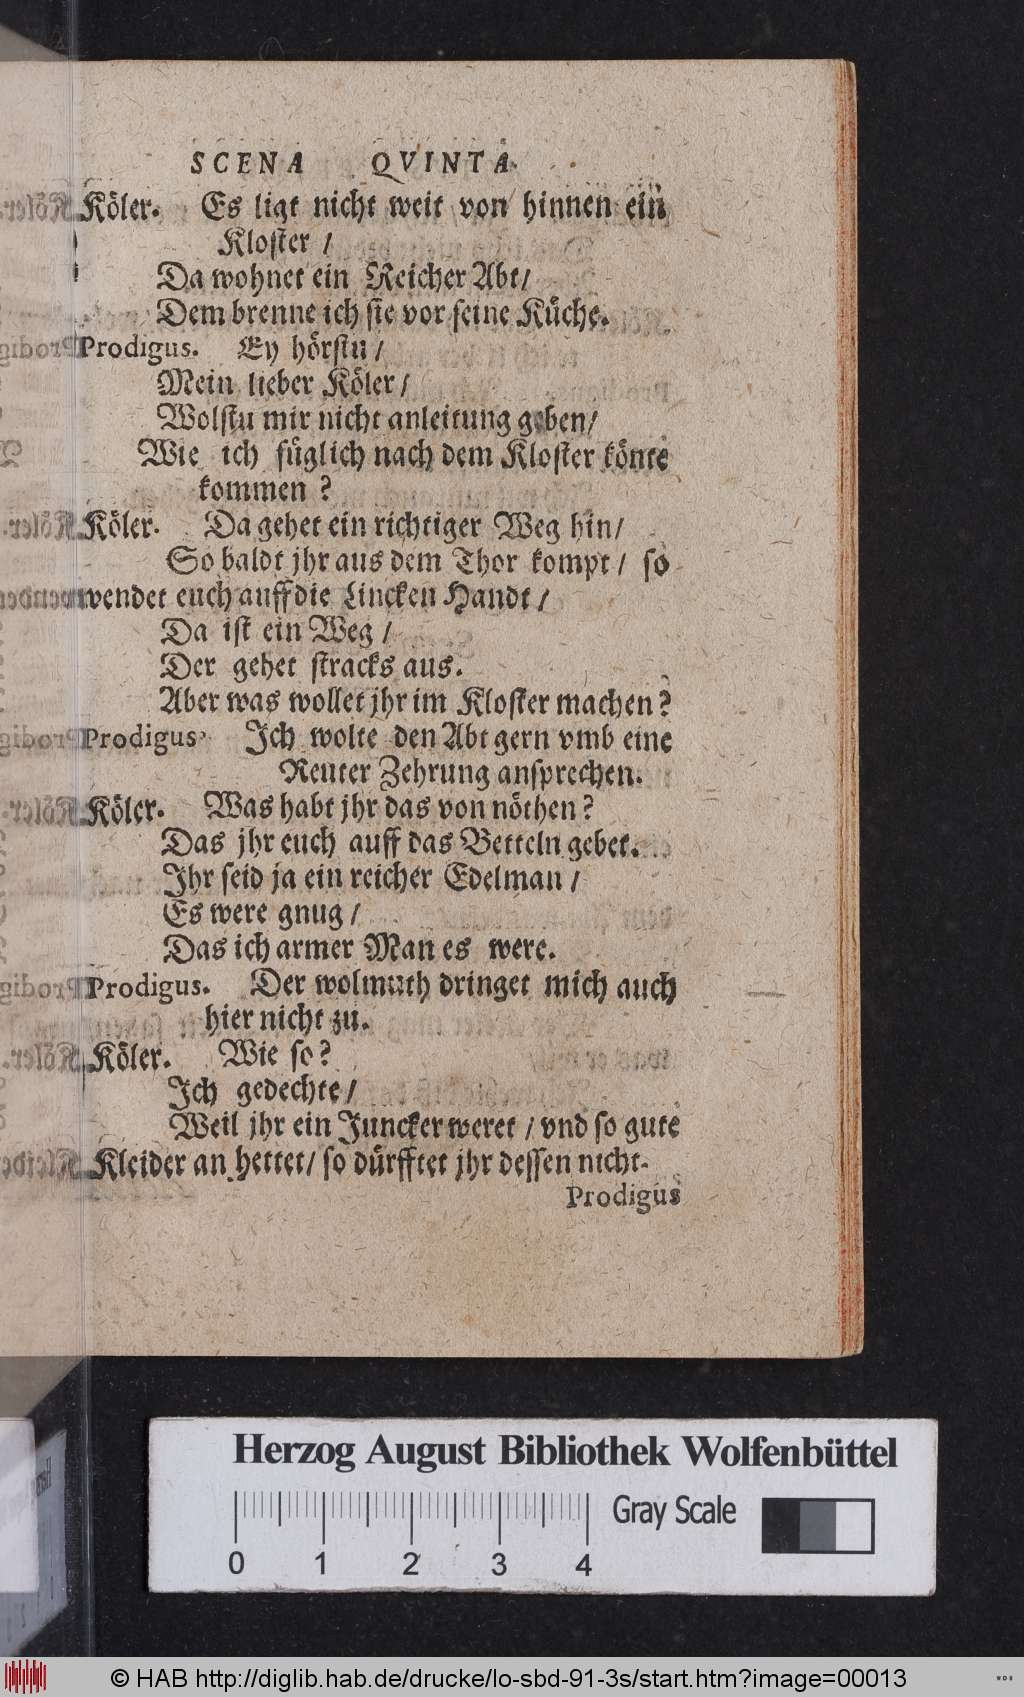 SCENA QVINTA.
Köler. Es ligt nicht weit von hinnen ein
Kloster /
Da wohnet ein Reicher Abt /
Dem brenne ich sie vor seine Küche.
Prodigus. Ey hörstu /
Mein lieber Köler /
Wolstu mir nicht anleitung geben /
Wie ich füglich nach dem Kloster könte
kommen ?
Köler. Da gehet ein richtiger Weg hin /
So baldt jhr aus dem Thor kompt / so
wendet euch auff die Lincken Handt /
Da ist ein Weg /
Der gehet stracks aus.
Aber was wollet jhr im Kloster machen ?
Prodigus. Ich wolte den Abt gern vmb eine
Reuter Zehrung ansprechen.
Köler. Was habt jhr das von nöthen ?
Das jhr euch auff das Betteln gebet.
Ihr seid ja ein reicher Edelman /
Es were gnug /
Das ich armer Man es were.
Prodigus. Der wolmuth dringet mich auch
hier nicht zu.
Köler. Wie so ?
Ich gedechte /
Weil jhr ein Juncker weret / vnd so gute
Kleider an hettet / so dürfftet jhr dessen nicht.
Prodigus
Herzog August Bibliothek Wolfenbüttel
Gray Scale
0 1 2 3 4
© HAB http://diglib.hab.de/drucke/lo-sbd-91-3s/start.htm?image=00013